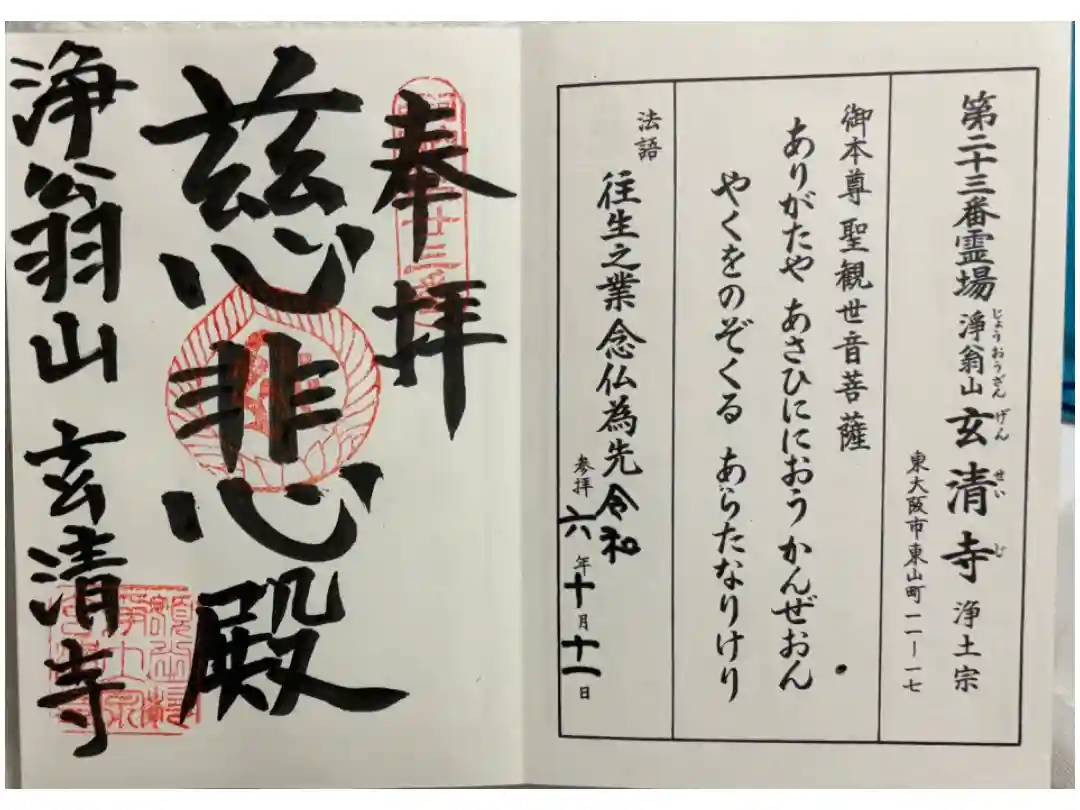 第二十三番霊場 浄翁山 玄清寺 浄土宗
じょうおうざん げんせいじ
東大阪市東山町一一ー一七
御本尊 聖観世音菩薩
ありがたや あさひににおう かんぜおん
やくをのぞくる あらたなりけり
法語 往生之業 念仏為先
参拝 令和六年十月十一日
奉拝
慈悲殿
浄翁山 玄清寺